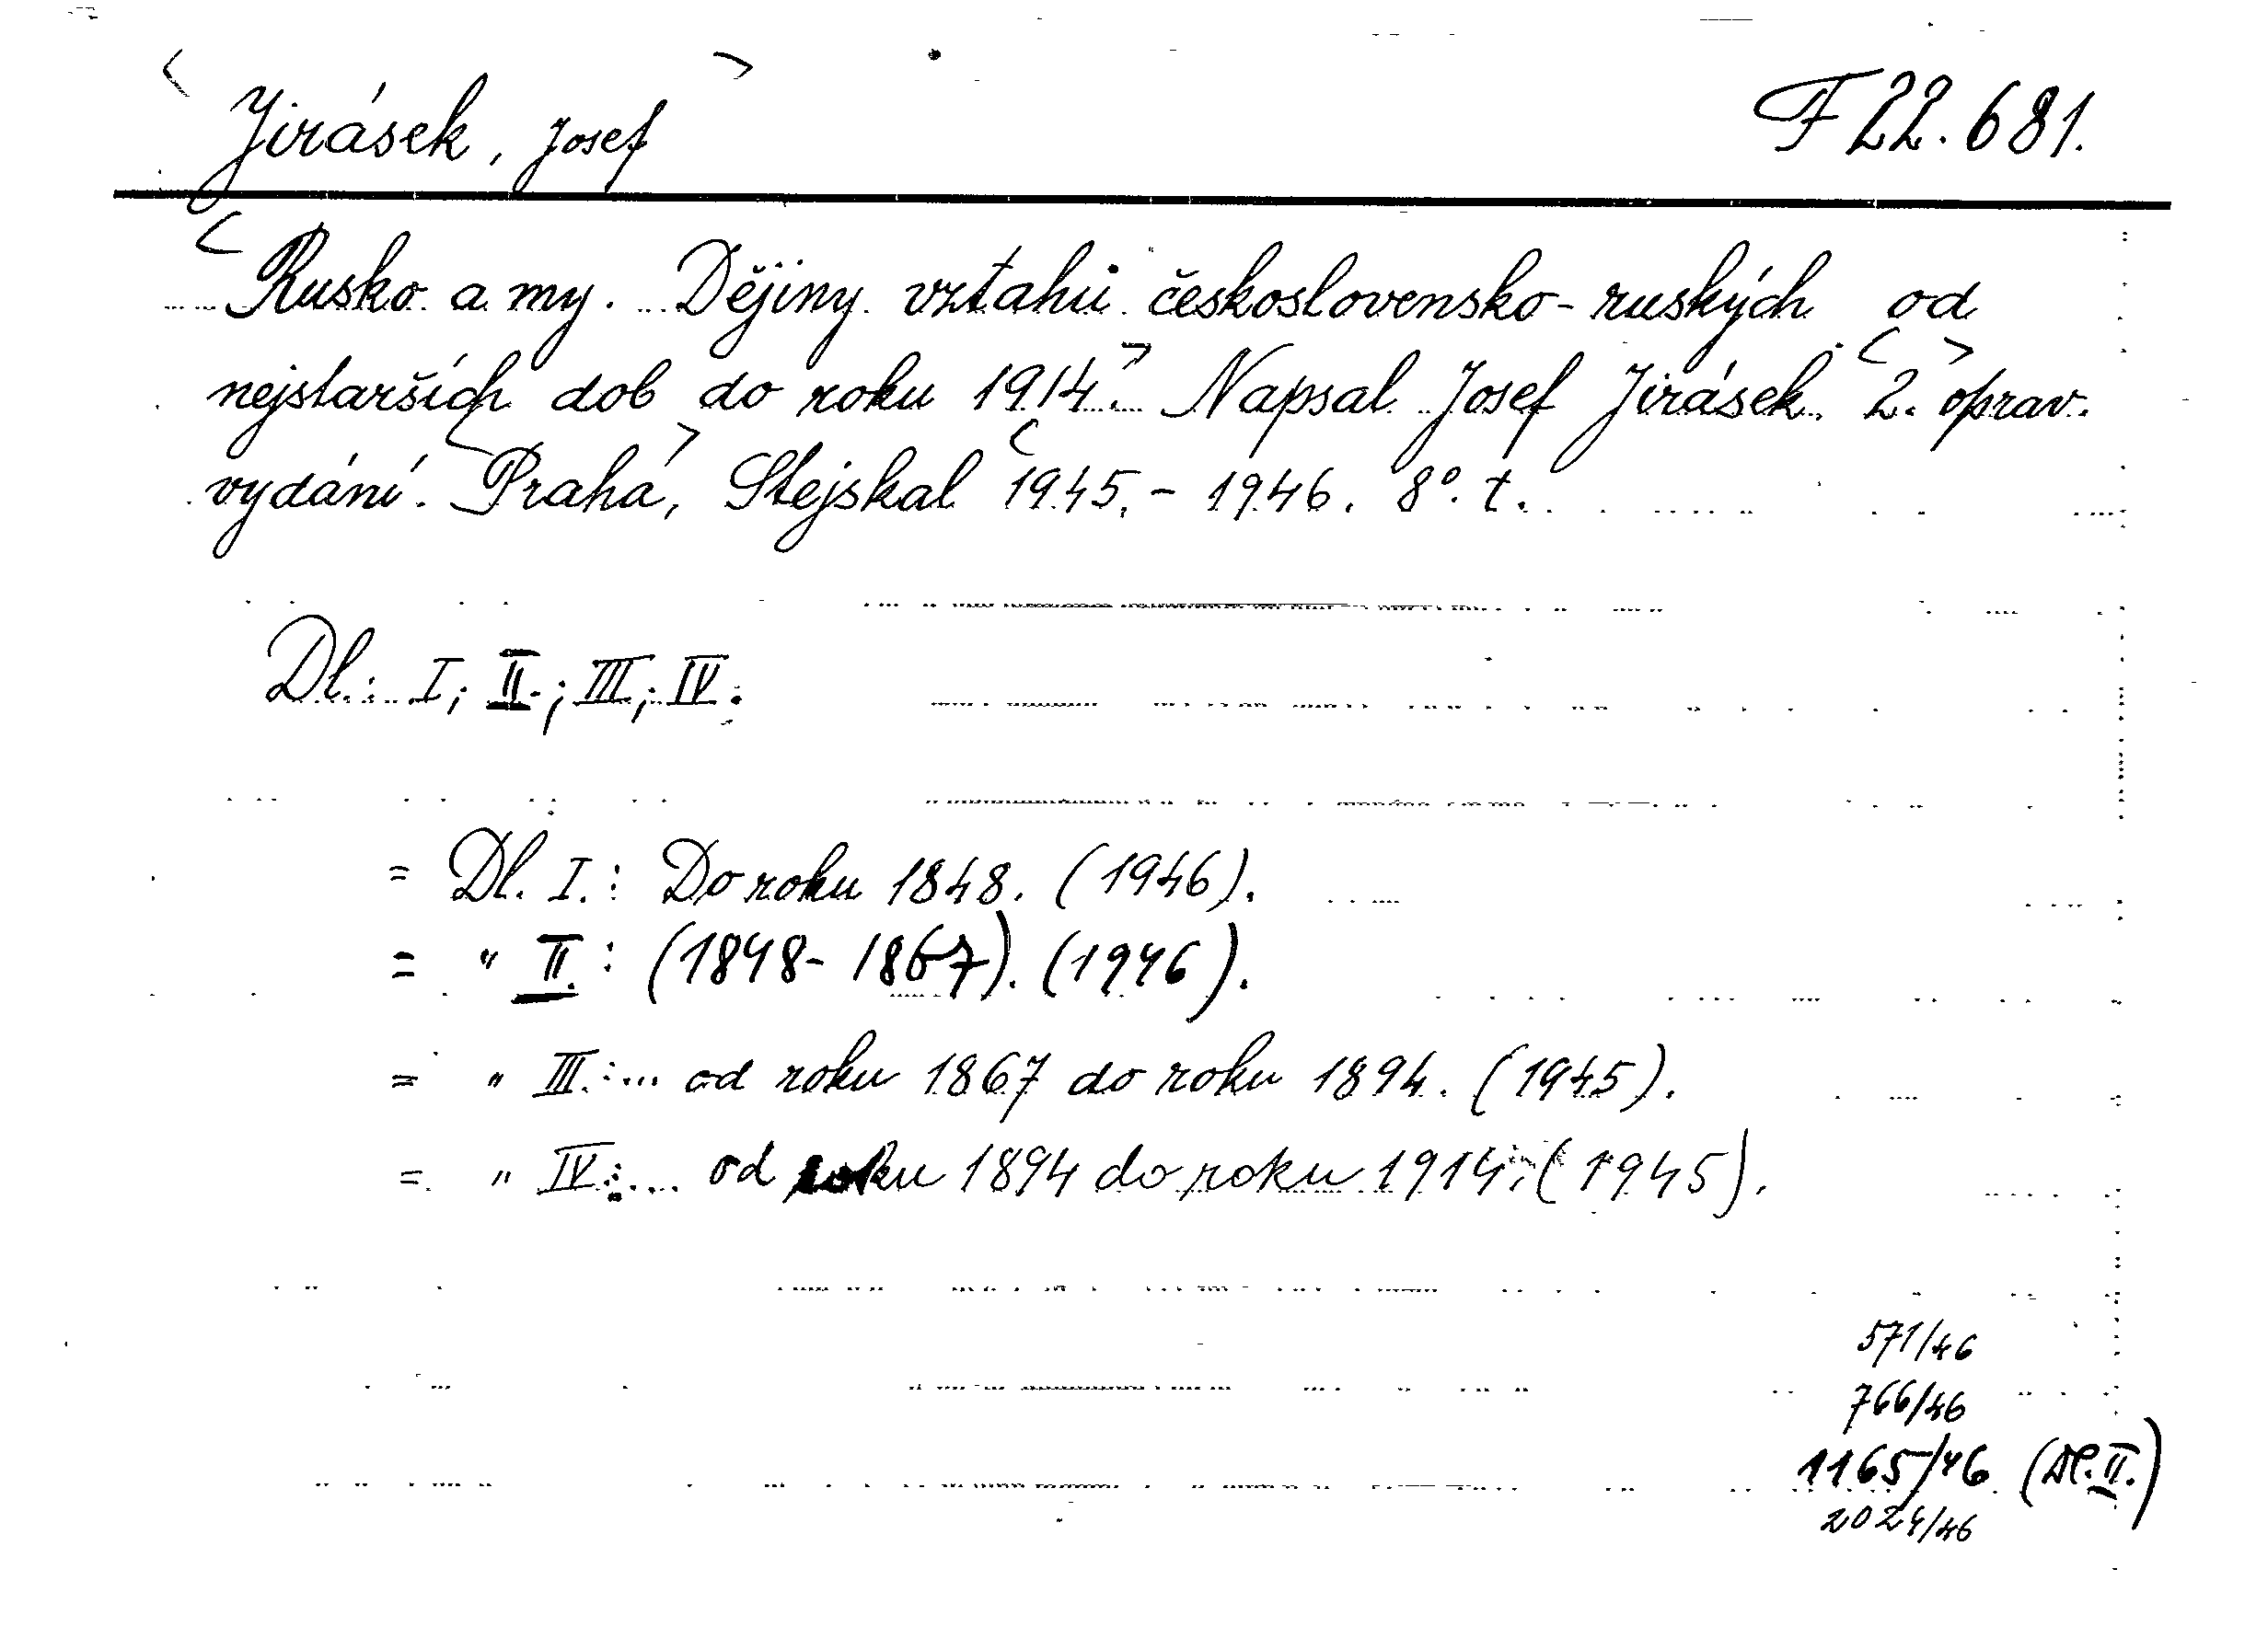 < Jirásek, Josef > F 22.681.
< Rusko a my. Dějiny vztahů československo-ruských od
nejstarších dob do roku 1914.> Napsal Josef Jirásek. <2.> oprav.
vydání. <Praha>, Stejskal <1945.-1946. 8°. t.
Dl.: I; II.; III; IV.
= Dl. I.: Do roku 1848. (1946).
= " II.: (1848-1867). (1946).
= " III.:... od roku 1867 do roku 1894. (1945).
= " IV.:... od roku 1894 do roku 1914. (1945).
571/46
766/46
1165/46 (Dl. II.)
2024/46